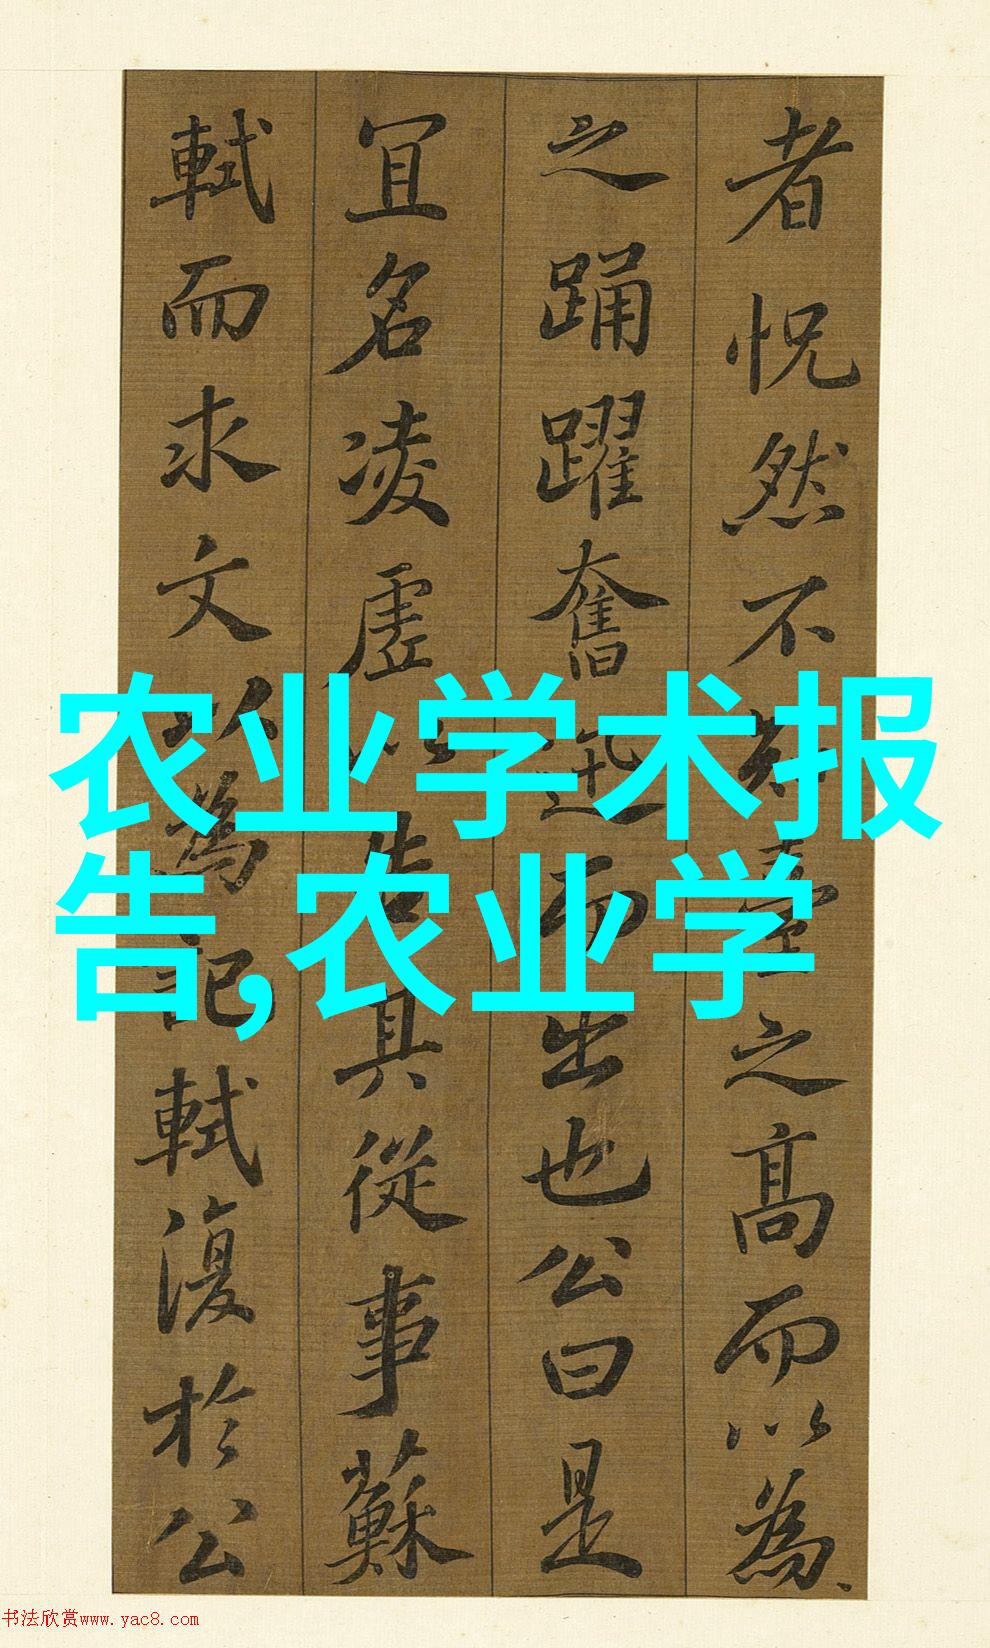 者怳然不知臺之高而以為
之踊躍奮迅而出也公曰是
宜名凌虛以告其從事蘇
軾而求文以為記軾復於公
农业学术报
告,农业学
书法欣赏www.yac8.com